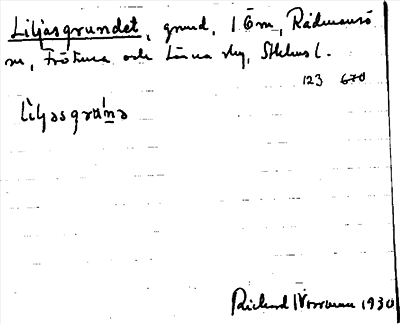 Liljasgrundet, grund, 1 öm, Rådmansö
sn, Frötuna och Länna skg, Sthlms l.
123 670
lìljasgrún̲ə
Richard 1930